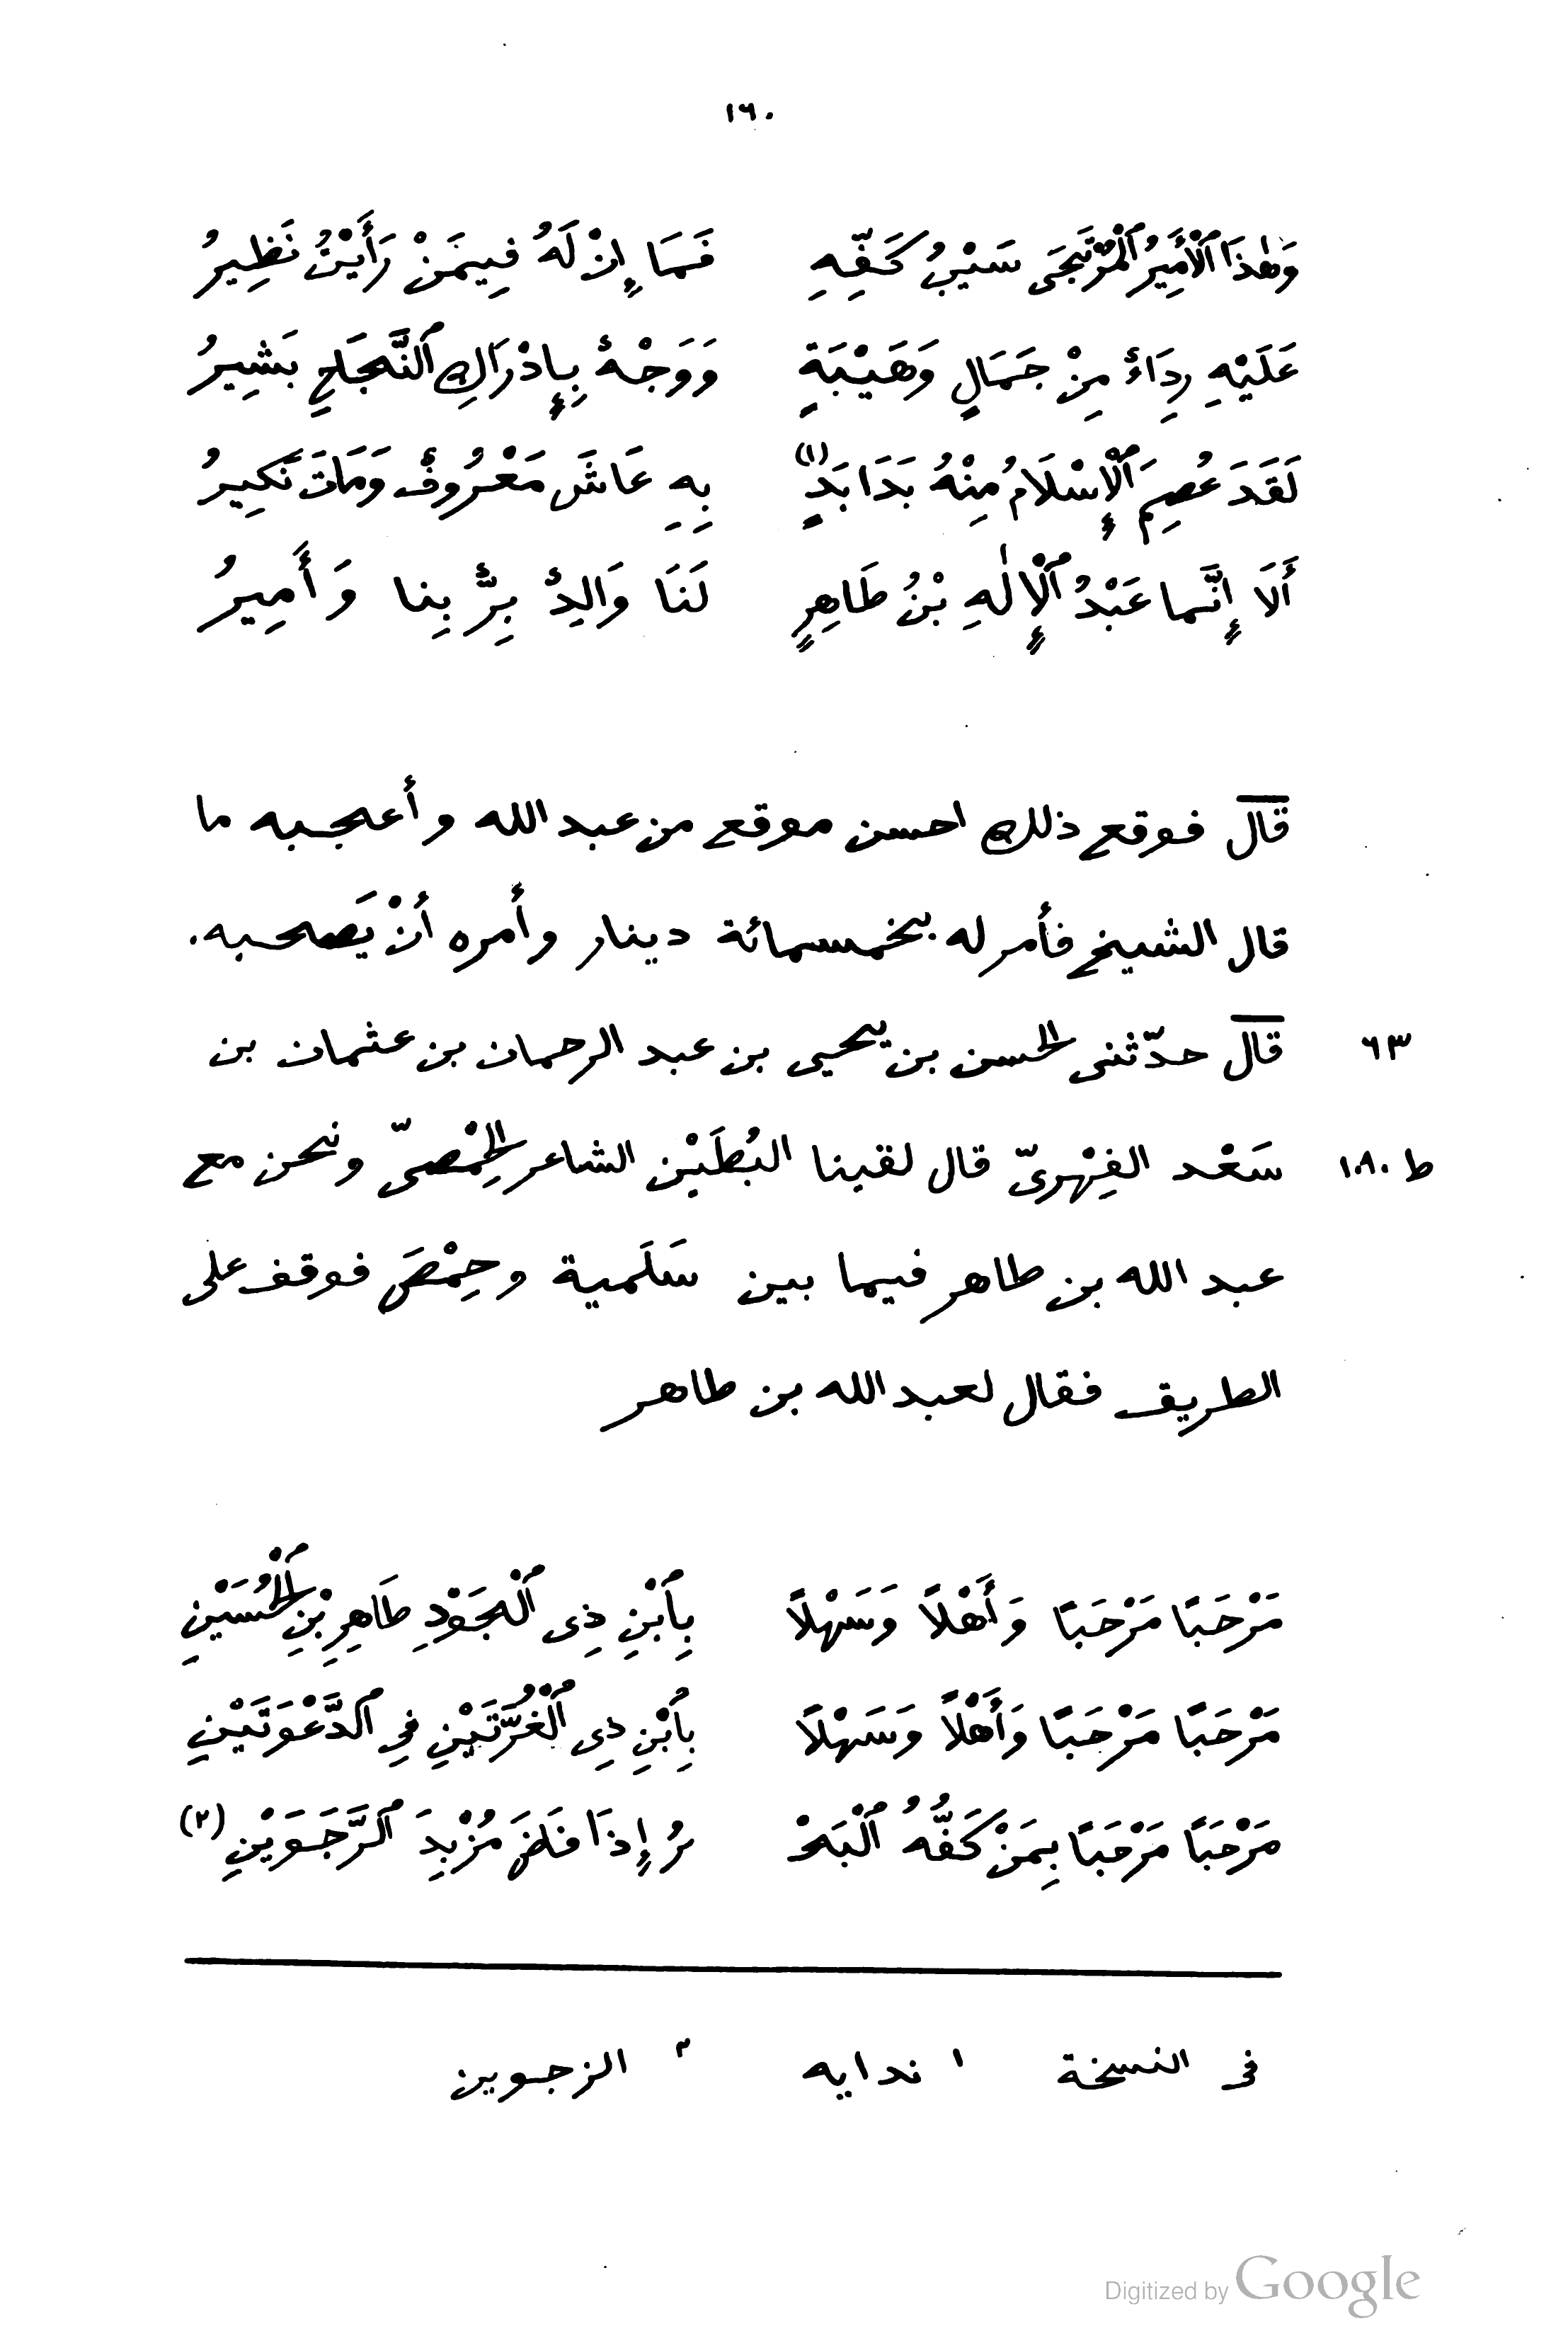 ١٦٠
وَهٰذَا ٱلْأَمِيرُ ٱلْمُرْتَجَى سَيْبُ كَفِّهِ فَمَا إِنْ لَهُ فِيمَنْ رَأَيْتُ نَظِيرُ
عَلَيْهِ رِدَاءٌ مِنْ جَمَالٍ وَهَيْبَةٍ وَوَجْهٌ بِإِدْرَاكِ ٱلنَّجَاحِ بَشِيرُ
لَقَدَ عُصِمَ ٱلْإِسْلَامُ مِنْهُ بَدَا بَدٍ (١) بِهِ عَاشَ مَعْرُوفٌ وَمَاتَ نَكِيرُ
أَلَا إِنَّما عَبْدُ ٱلْإِلٰهِ بْنُ طَاهِرٍ لَنَا وَالِدٌ بِرٌّ بِنا وَأَمِيرُ
قال فوقع ذلك احسن موقع من عبد الله وأعجبه ما
قال الشيخ فأمر له بخمسمائة دينار وأمره أنْ يَصحبه.
٦٣ قال حدّثنى الحسن بن يحيى بن عبد الرحمان بن عثمان بن
ط ١٠٩٠ سَعْد الفِهْرىّ قال لقينا البُطَيْن الشاعر الحِمْصىّ ونحن مع
عبد الله بن طاهر فيما بين سَلَمية وحِمْصَ فوقف على
الطريق فقال لعبد الله بن طاهر
مَرْحَبًا مَرْحَبًا وَأَهْلًا وَسَهْلًا بِٱبْنِ ذِى ٱلْجَوْدِ طَاهِرِ بْنِ ٱلْحُسَيْنِ
مَرْحَبًا مَرْحَبًا وَأَهْلًا وَسَهْلًا بِٱبْنِ ذِى ٱلْغُرَّتَيْنِ فِي ٱلدَّعْوَتَيْنِ
مَرْحَبًا مَرْحَبًا بِمَنْ كَفُّهُ ٱلْبَحْ رُ إِذَا فَاضَ مُزْبِدَ ٱلرَّجَوَيْنِ (٢)
فى النسخة ١ ندايه ٢ الزجوين
Digitized by Google